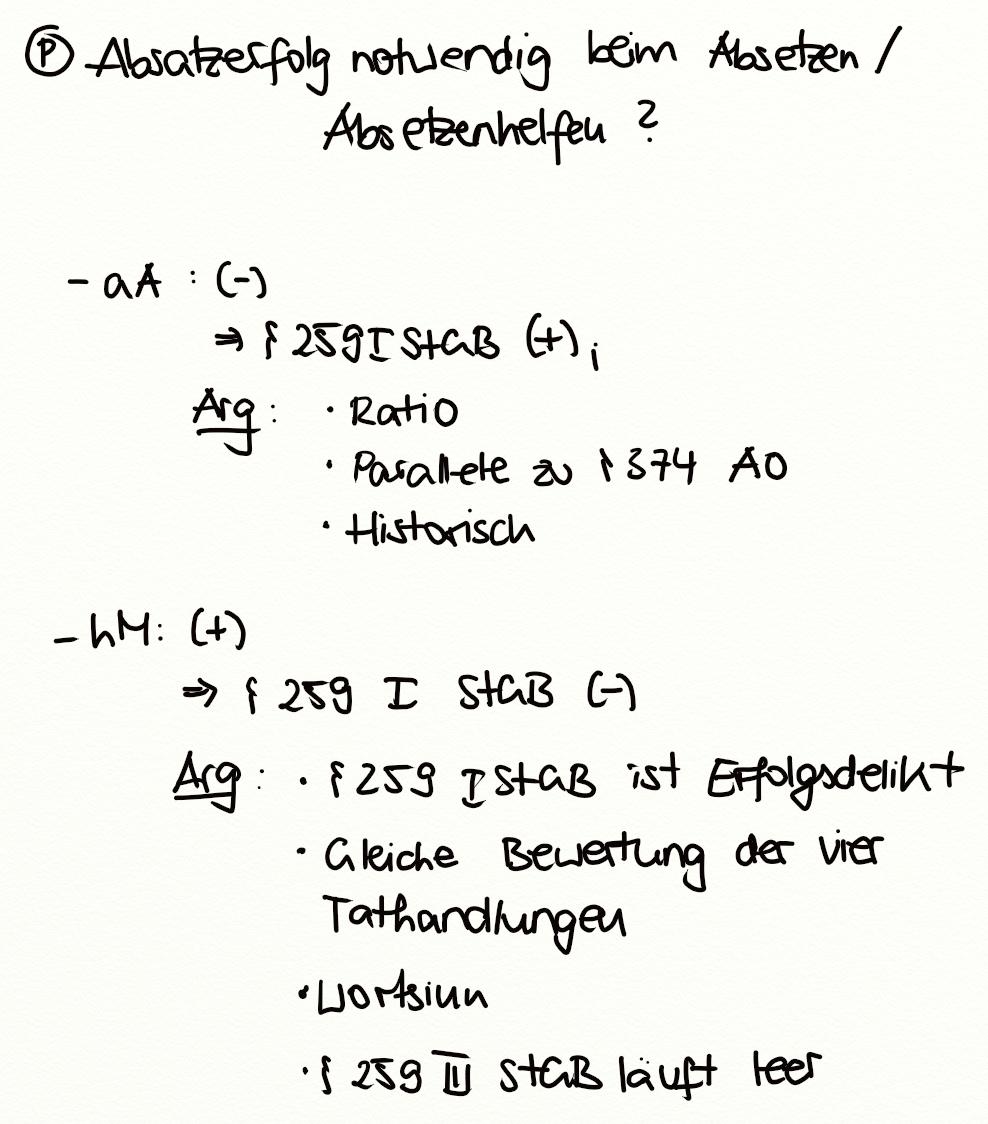 Ⓟ Absatzerfolg notwendig beim Absetzen /
Absetzenhelfen ?
- aA : (-)
⇒ § 259 I StGB (+) ;
Arg : · Ratio
· Parallele zu § 374 AO
· Historisch
- hM: (+)
⇒ § 259 I StGB (-)
Arg : · § 259 I StGB ist Erfolgsdelikt
· Gleiche Bewertung der vier
Tathandlungen
· Wortsinn
· § 259 III StGB läuft leer